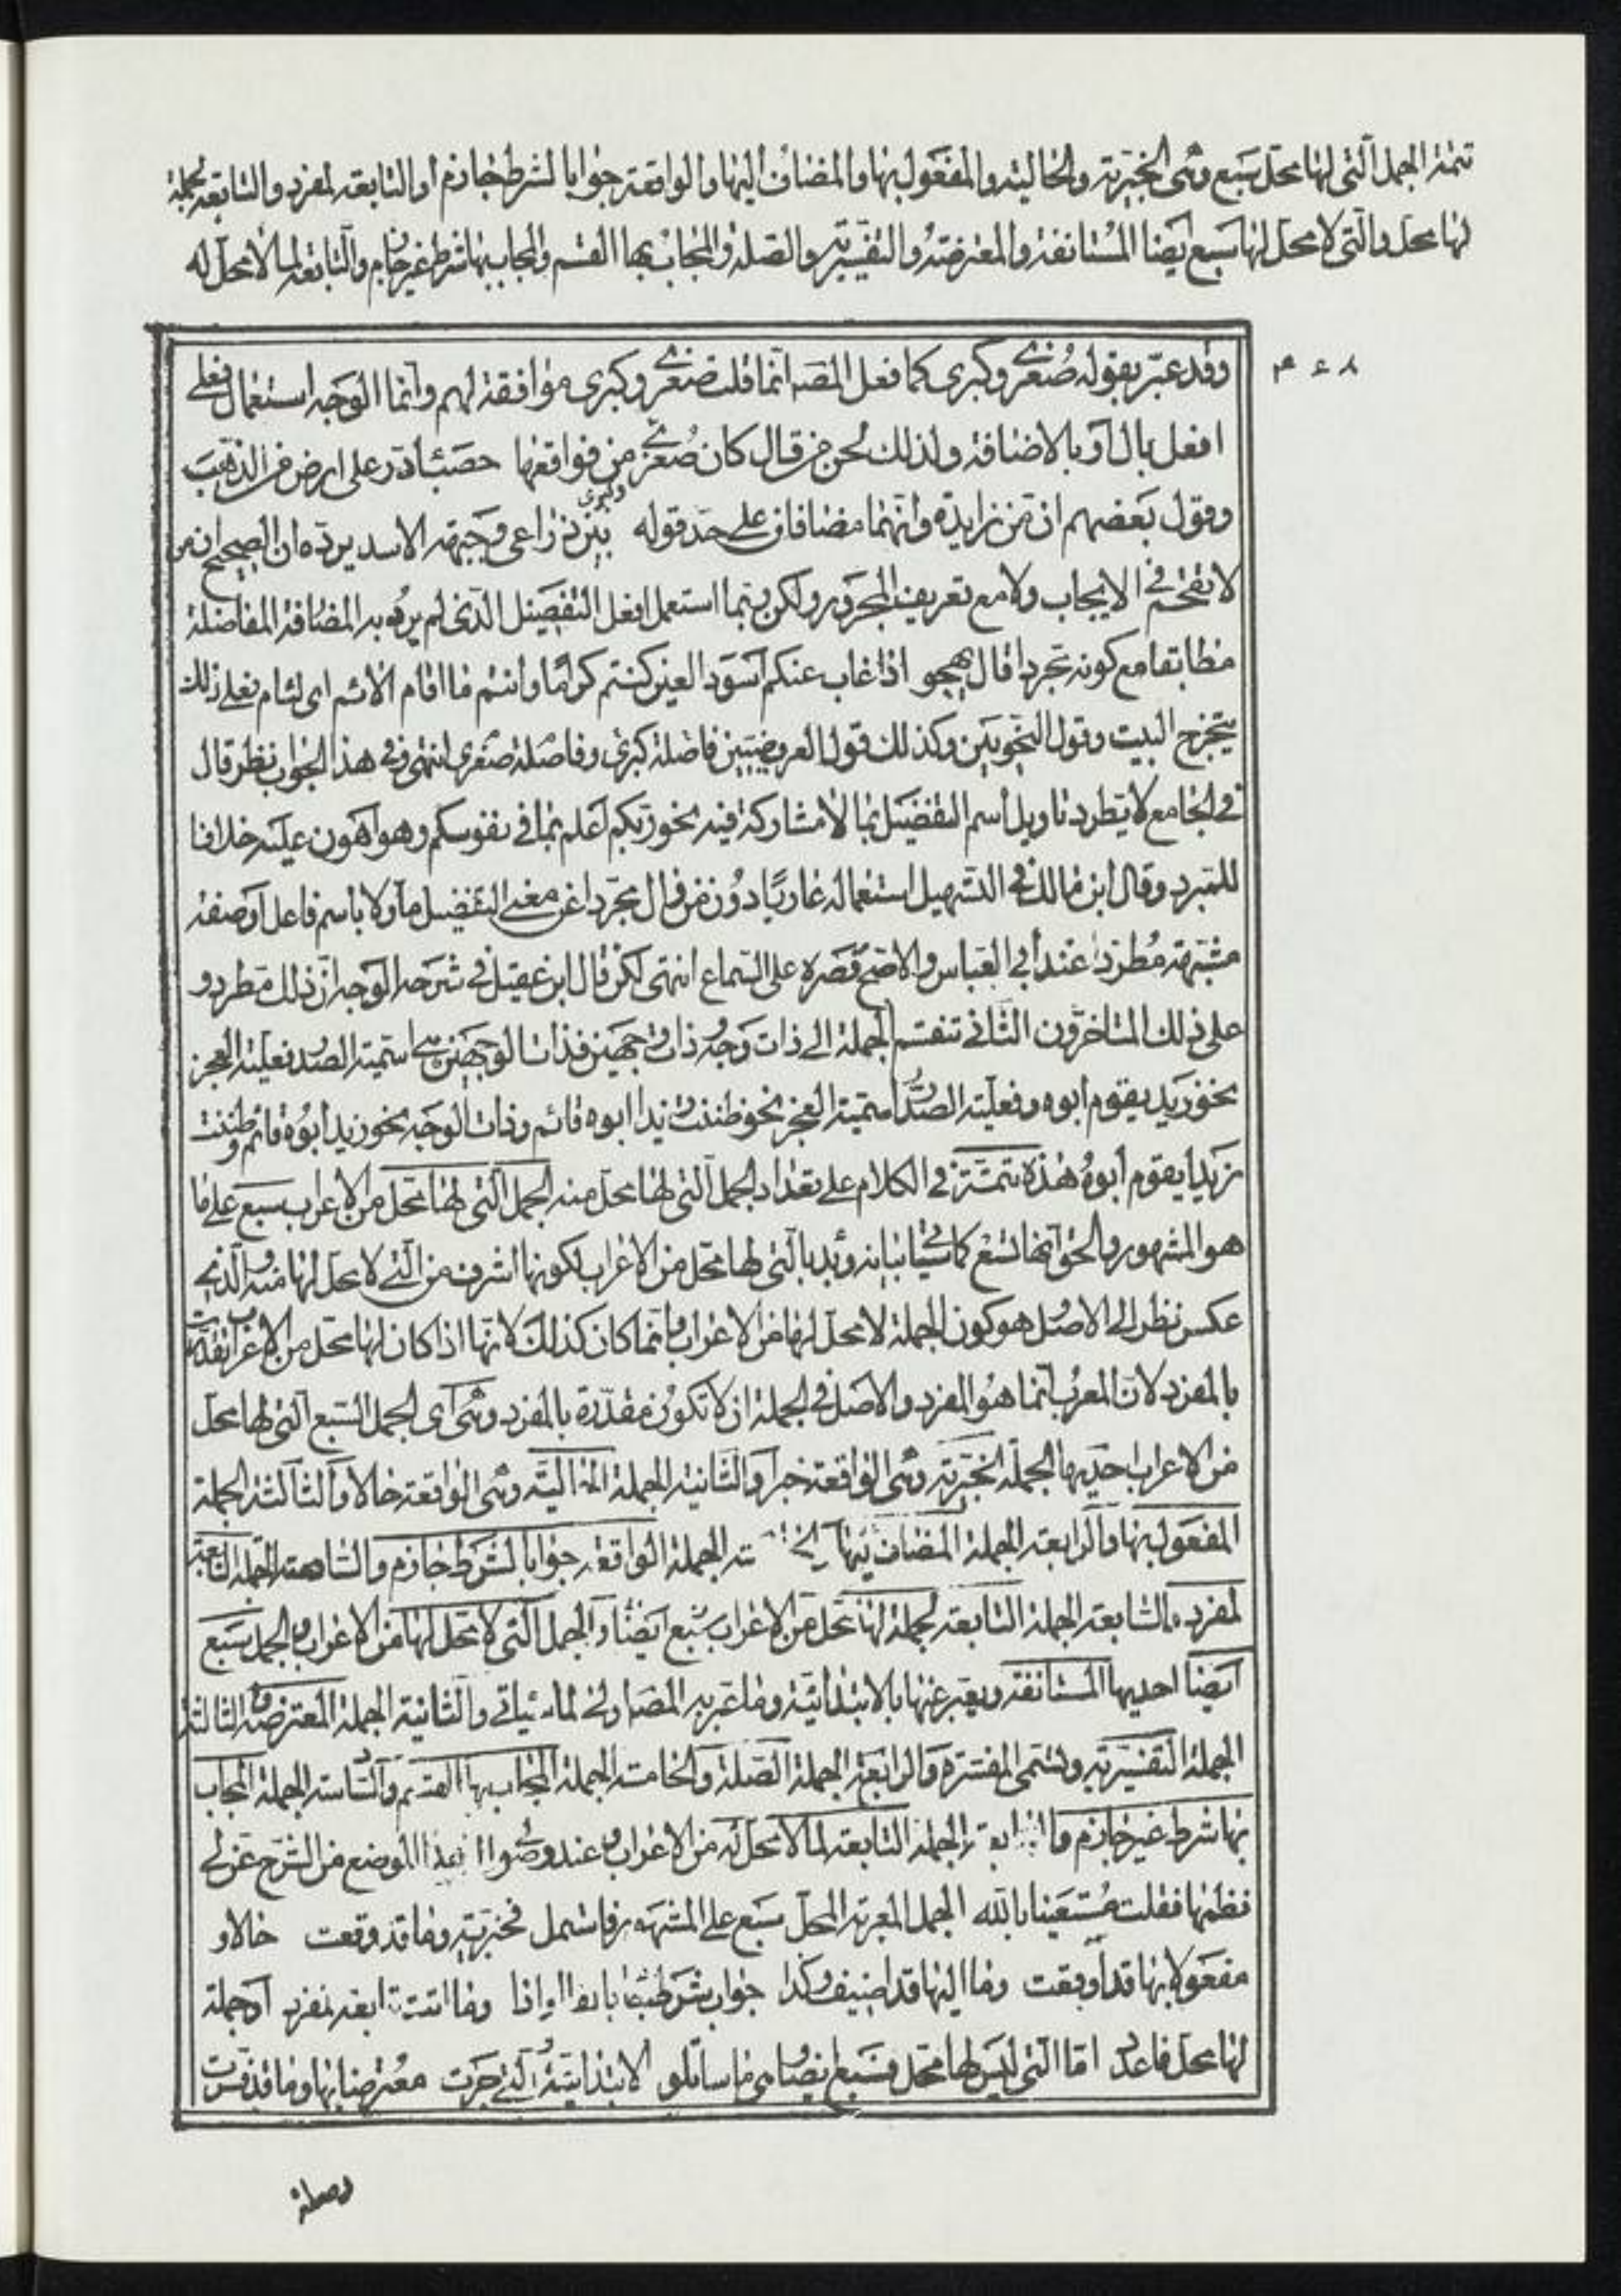 تتمة الجمل التی لها محل سبع وهی الخبریة والحالیة والمفعول بها والمضاف الیها والواقعة جوابا لشرط جازم او التابعة لمفرد والتابعة لجملة
لها محل والتی لا محل لها سبع ایضا المستانفة والمعترضة والتفسیریة والصلة والمجاب بها القسم والمجاب بها شرط غیر جازم والتابعة لما لا محل له
وقد عبّر بقوله صغرى وكبرى كما فعل المصه انما قلت صغرى وكبرى موافقة لهم وانما الوجه استعمال فعلى
افعل بال او بالاضافة ولذلك لحن من قال كان صغرى من فواقعها حصباء در على ارض من الذهب
وكبرى
وقول بعضهم ان من زايدة وانهما مضافان على حد قوله بين ذراعى وجبهة الاسد يرده ان الصحيح ان من
لا تقحم فى الايجاب ولا مع تعريف المجرور ولكن ربما استعمل افعل التفضيل الذى لم يرد به المضافة المفاضلة
مطابقا مع كونه مجردا قال يهجو اذا غاب عنكم اسود العين كنتم كراما وانتم ما اقام الائم اى لئام فعلى ذلك
يتخرج البيت وقول النحويين وكذلك قول العروضيين فاصلة كبرى وفاصلة صغرى انتهى وفى هذا الجواب نظر قال
فى الجامع لا يطرد تاويل اسم التفضيل بما لا مشاركة فيه نحو ربكم اعلم بما فى نفوسكم وهو اهون عليه خلافا
للمبرد وقال ابن مالك فى التسهيل استعماله عاريا دون من مجردا عن معنى التفضيل مأولا باسم فاعل او صفة
مشبهة مطرد عند ابى العباس والاصح قصره على السماع انتهى لكن قال ابن عقيل فى شرحه الوجه ان ذلك مطرد و
على ذلك المتاخرون الثانى تنقسم الجملة الى ذات وجه وذات وجهين فذات الوجهين هى اسمية الصدر فعلية العجز
نحو زيد يقوم ابوه وفعلية الصدر اسمية العجز نحو ظننت زيدا ابوه قائم وذات الوجه نحو زيد ابوه قائم وظننت
زيدا يقوم ابوه هذه تتمة فى الكلام على تعداد الجمل التى لها محل منه الجمل التى لها محل من الاعراب سبع على ما
هو المشهور والحق انها تسع كما سياتى بيانه وبدء بالتى لها محل من الاعراب لكونها اشرف من التى لا محل لها منه والذى
عكس نظر الى الاصل هو كون الجملة لا محل لها من الاعراب وانما كان كذلك لانها اذا كان لها محل من الاعراب تقدرت
بالمفرد لان المعرب انما هو المفرد والاصل فى الجملة ان لا تكون مقدرة بالمفرد وهى اى الجمل السبع التى لها محل
من الاعراب احديها الجملة الخبرية وهى الواقعة خبرا والثانية الجملة الحالية وهى الواقعة حالا والثالثة الجملة
المفعول بها والرابعة الجملة المضاف اليها والخامسة الجملة الواقعة جوابا لشرط جازم والسادسة الجملة التابعة
لمفرد والسابعة الجملة التابعة لجملة لها محل من الاعراب سبع ايضا والجمل التى لا محل لها من الاعراب والجمل سبع
ايضا احديها المستانفة ويعبر عنها بالابتدائية وما عبر به المصه اولى لما سياتى والثانية الجملة المعترضة والثالثة
الجملة التفسيرية وتسمى المفسرة والرابعة الجملة الصلة والخامسة الجملة المجاب بها القسم والسادسة الجملة المجاب
بها شرط غير جازم والسابعة الجملة التابعة لما لا محل له من الاعراب وعند وصولى هذا الموضع من الشرح عن لى
نظمها فقلت مستعينا بالله الجمل المعربة المحل سبع على المشهور فاشمل فخبرية وما قد وقعت حالا و
مفعولا بها قد اوقعت وما اليها قد اضيف وكذا جواب شرط بالفا او اذا وما اتت تابعة لمفرد او جملة
لها محل فاعدد اما التى ليس لها محل فسبع ايضا وهى ما ساتلو الابتدائية التى جرت معترضا بها وما قد فسرت
وصلة